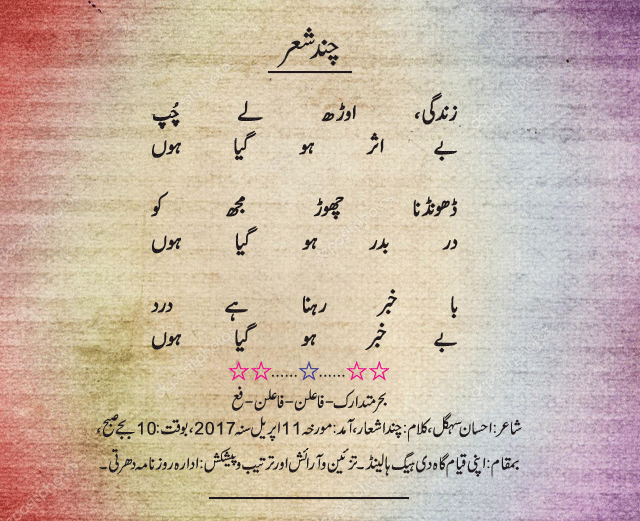 چند شعر
زندگی، اوڑھ لے چُپ
بے اثر ہو گیا ہوں
ڈھونڈنا چھوڑ مجھ کو
در بدر ہو گیا ہوں
با خبر رہنا ہے درد
بے خبر ہو گیا ہوں
☆☆......☆......☆☆
بحر متدارک-فاعلن-فاعلن-فع
شاعر:احسان سہگل، کلام:چند اشعار، آمد:مورخہ 11 اپریل سنہ 2017، بوقت:10 بجے صبح،
بمقام:اپنی قیام گاہ دی ہیگ ہالینڈ۔ تزئین و آرائش اور ترتیب و پیشکش:ادارہ روزنامہ دھرتی۔